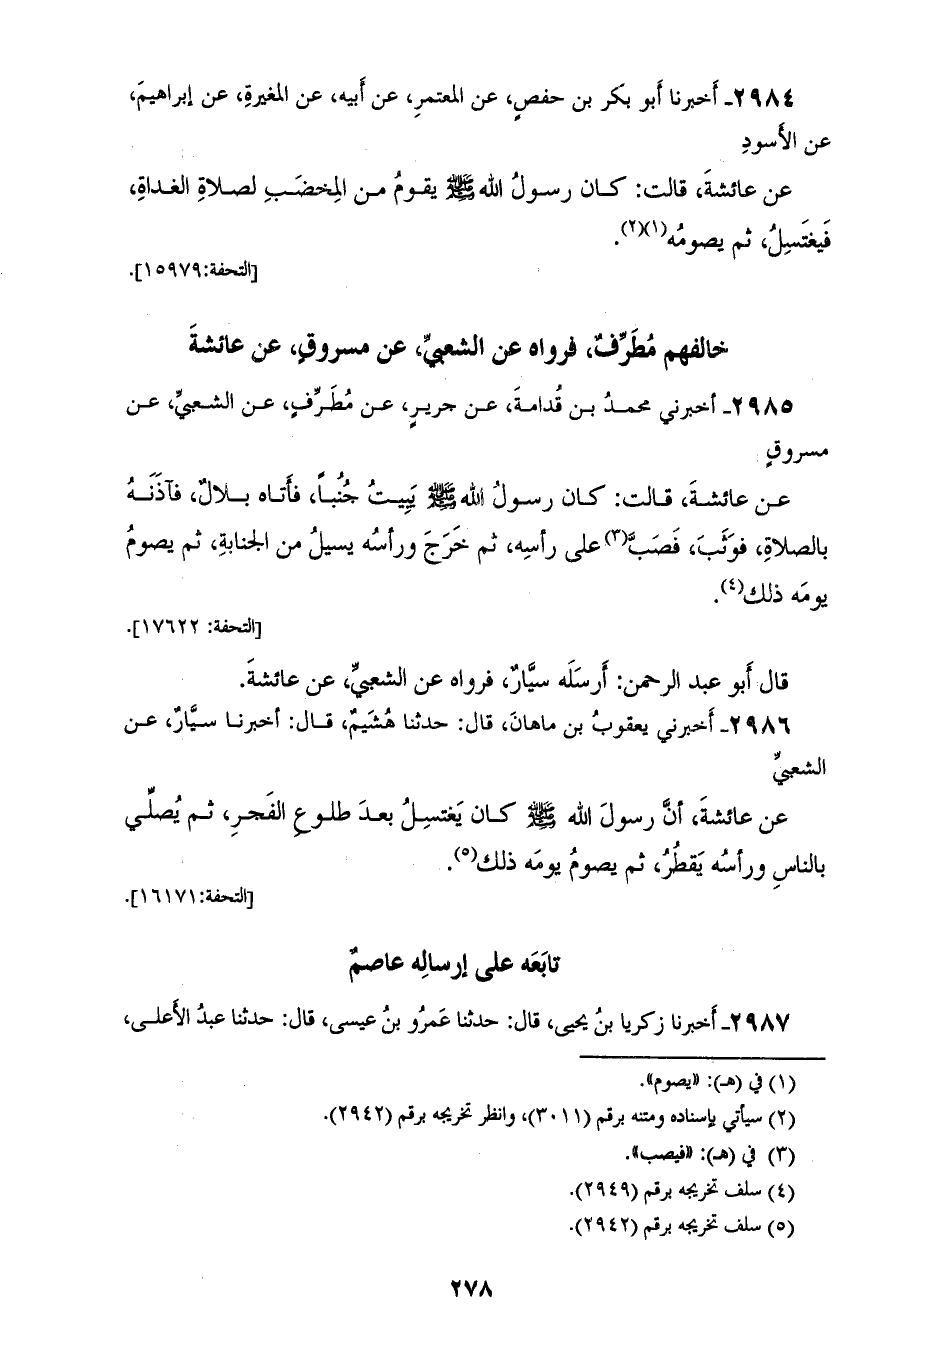 ٢٩٨٤ـ أخبرنا أبو بكر بن حفصٍ، عن المعتمرِ، عن أَبيه، عن المغيرةِ، عن إبراهيمَ،
عن الأَسودِ
عن عائشةَ، قالت: كان رسولُ الله ﷺ يقومُ من المِخضَبِ لصلاةِ الغداةِ،
فَيغتَسِلُ، ثم يصومُه(١)(٢).
[التحفة:١٥٩٧٩].
خالفهم مُطَرِّفٌ، فرواه عن الشعبيِّ، عن مسروقٍ، عن عائشةَ
٢٩٨٥ـ أخبرني محمدُ بن قُدامةَ، عن جريرٍ، عن مُطَرِّفٍ، عن الشعبيِّ، عن
مسروقٍ
عن عائشةَ، قالت: كان رسولُ الله ﷺ يَبِيتُ جُنُباً، فأَتاه بلالٌ، فآذَنَهُ
بالصلاةِ، فوَثَبَ، فَصَبَّ(٣) على رأسِه، ثم خَرَجَ ورأسُه يسيلُ من الجنابةِ، ثم يصومُ
يومَه ذلك(٤).
[التحفة: ١٧٦٢٢].
قال أَبو عبد الرحمن: أَرسَلَه سيَّارٌ، فرواه عن الشعبيِّ، عن عائشةَ.
٢٩٨٦ـ أَخبرني يعقوبُ بن ماهانَ، قال: حدثنا هُشَيمٌ، قال: أخبرنا سيَّارٌ، عن
الشعبيِّ
عن عائشةَ، أنَّ رسولَ الله ﷺ كان يَغتسِلُ بعدَ طلوعِ الفَجرِ، ثم يُصلِّي
بالناسِ ورأسُه يَقطُرُ، ثم يصومُ يومَه ذلك(٥).
[التحفة:١٦١٧١].
تابَعَه على إرسالِه عاصمٌ
٢٩٨٧ـ أَخبرنا زكريا بنُ يحيى، قال: حدثنا عَمرُو بنُ عيسى، قال: حدثنا عبدُ الأَعلى،
(١) في (هـ): «يصوم».
(٢) سيأتي بإسناده ومتنه برقم (٣٠١١)، وانظر تخريجه برقم (٢٩٤٢).
(٣) في (هـ): «فيصب».
(٤) سلف تخريجه برقم (٢٩٤٩).
(٥) سلف تخريجه برقم (٢٩٤٢).
٢٧٨